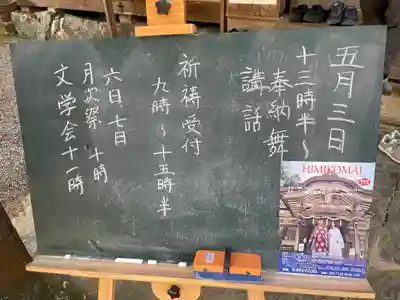 五月三日
十三時半～
奉納舞
講話
祈祷受付
九時～十五時半
六日、七日
月次祭 十時
文学会十一時
HIMIKOMAI